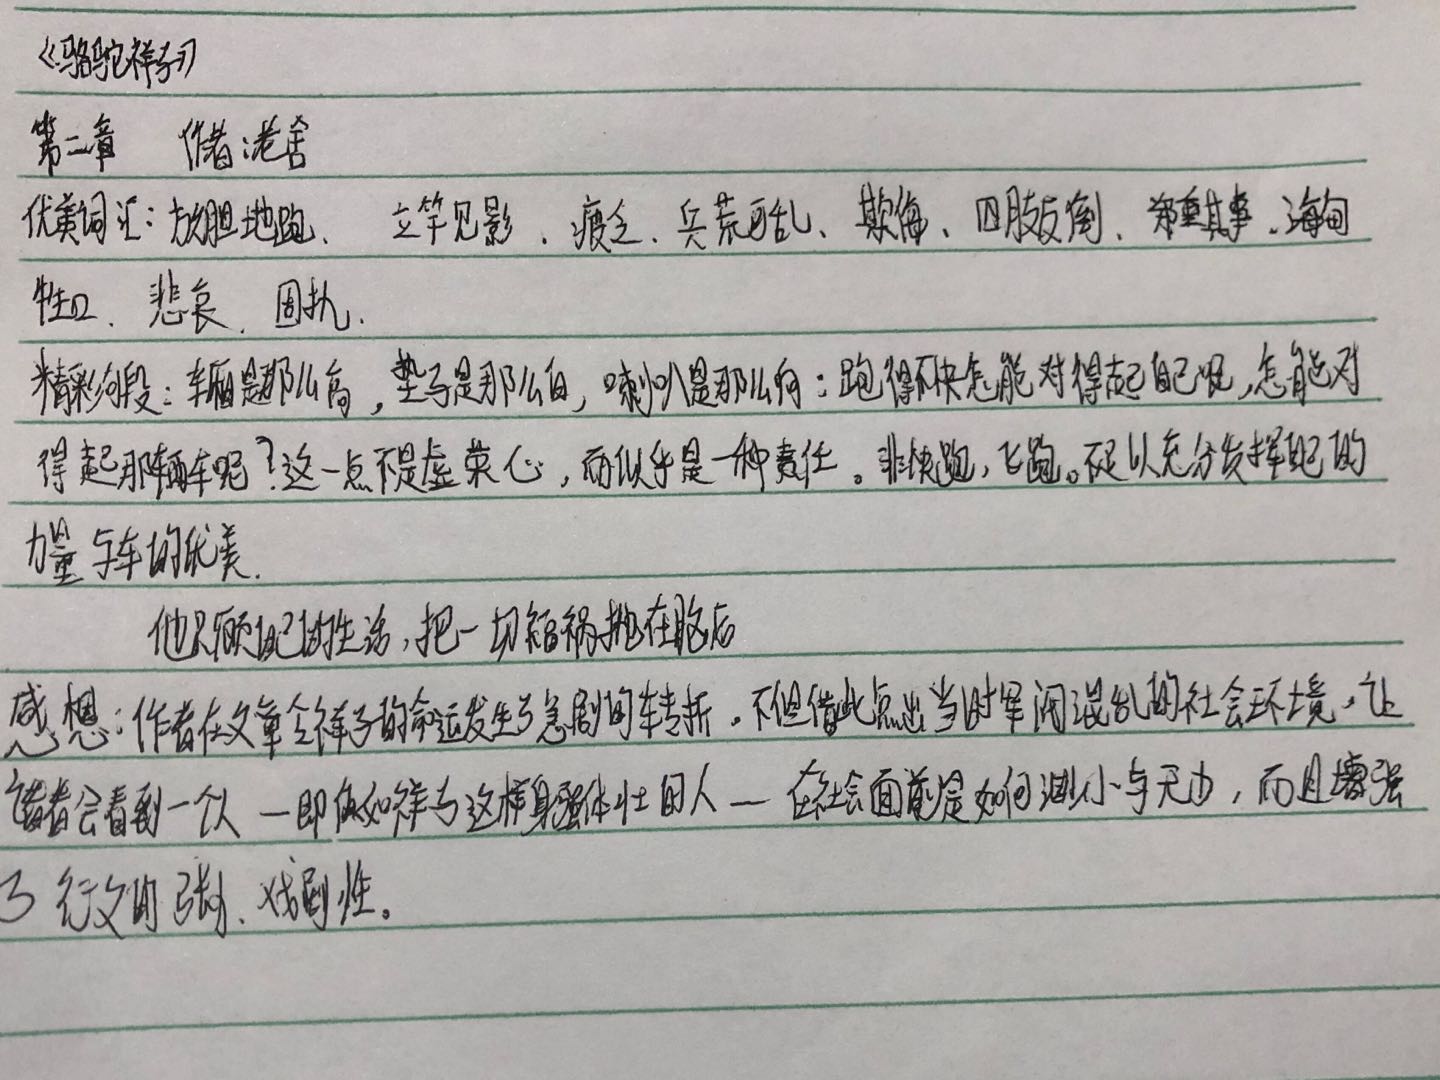 《骆驼祥子》
第二章 作者:老舍
优美词汇:放胆地跑、 立竿见影、疲乏、兵荒马乱、欺侮、四肢反倒、郑重其事、海甸
牲口、悲哀、固执、
精彩句段:车厢是那么高,垫子是那么白,喇叭是那么响;跑得不快怎能对得起自己呢,怎能对
得起那辆车呢?这一点不是虚荣心,而似乎是一种责任。非快跑,飞跑。不足以充分发挥自己的
力量与车的优美.
他只顾自己的生活,把一切祸祸抛在脑后
感想:作者在文章令祥子的命运发生了急剧的转折。不但借此点出当时军阀混乱的社会环境,让
读者会看到一个人—即使如祥子这样身强体壮的人—在社会面前是如何渺小与无力,而且增强
了行文的张力、戏剧性。